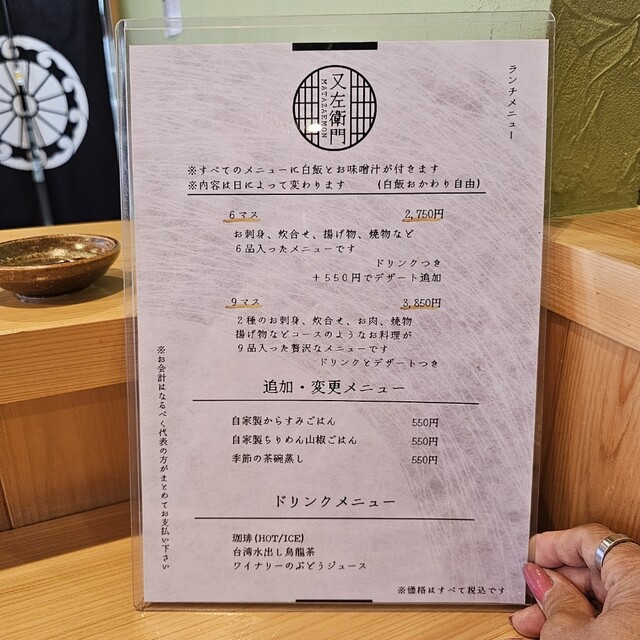 ランチメニュー
又左衛門
MATAZAEMON
※すべてのメニューに白飯とお味噌汁が付きます
※内容は日によって変わります　(白飯おかわり自由)
6マス　2,750円
お刺身、炊合せ、揚げ物、焼物など
6品入ったメニューです
ドリンクつき
＋550円でデザート追加
9マス　3,850円
2種のお刺身、炊合せ、お肉、焼物
揚げ物などコースのようなお料理が
9品入った贅沢なメニューです
ドリンクとデザートつき
追加・変更メニュー
自家製からすみごはん　550円
自家製ちりめん山椒ごはん　550円
季節の茶碗蒸し　550円
ドリンクメニュー
珈琲(HOT/ICE)
台湾水出し烏龍茶
ワイナリーのぶどうジュース
※価格はすべて税込です
※お会計はなるべく代表の方がまとめてお支払い下さい